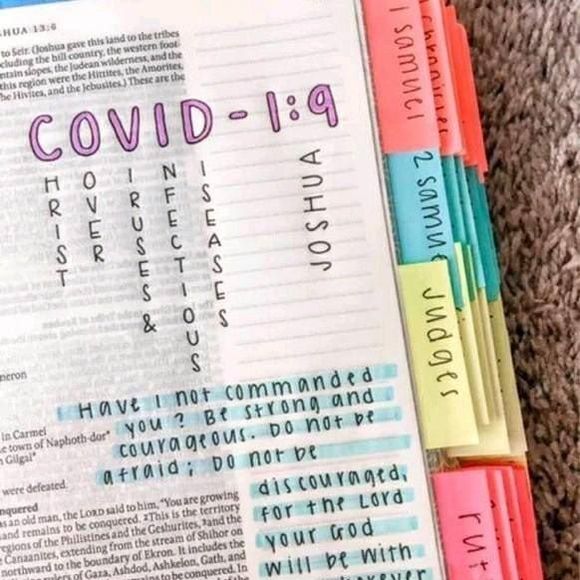 HUA 13:6
to Seir. (Joshua gave this land to the tribes
cluding the hill country, the western foot-
ntain slopes, the Judean wilderness, and the
this region were the Hittites, the Amorites,
he Hivites, and the Jebusites.) These are the
COVID-1:9
HRIST
OVER
IRUSES &
NFECTIOUS
ISEASES
JOSHUA
Have I not commanded
you? Be strong and
courageous. Do not be
afraid; Do not be
discouraged,
for the Lord
your God
will be with
meron
in Carmel
e town of Naphoth-dor*
Gilgal*
were defeated.
nquered
as an old man, the LORD said to him, "You are growing
and remains to be conquered. 2This is the territory
regions of the Philistines and the Geshurites, 3and the
Canaanites, extending from the stream of Shihor on
northward to the boundary of Ekron. It includes the
rulers of Gaza, Ashdod, Ashkelon, Gath, and
to be conquered. In
1 samuel
chronicles
2 samue
Judges
rut